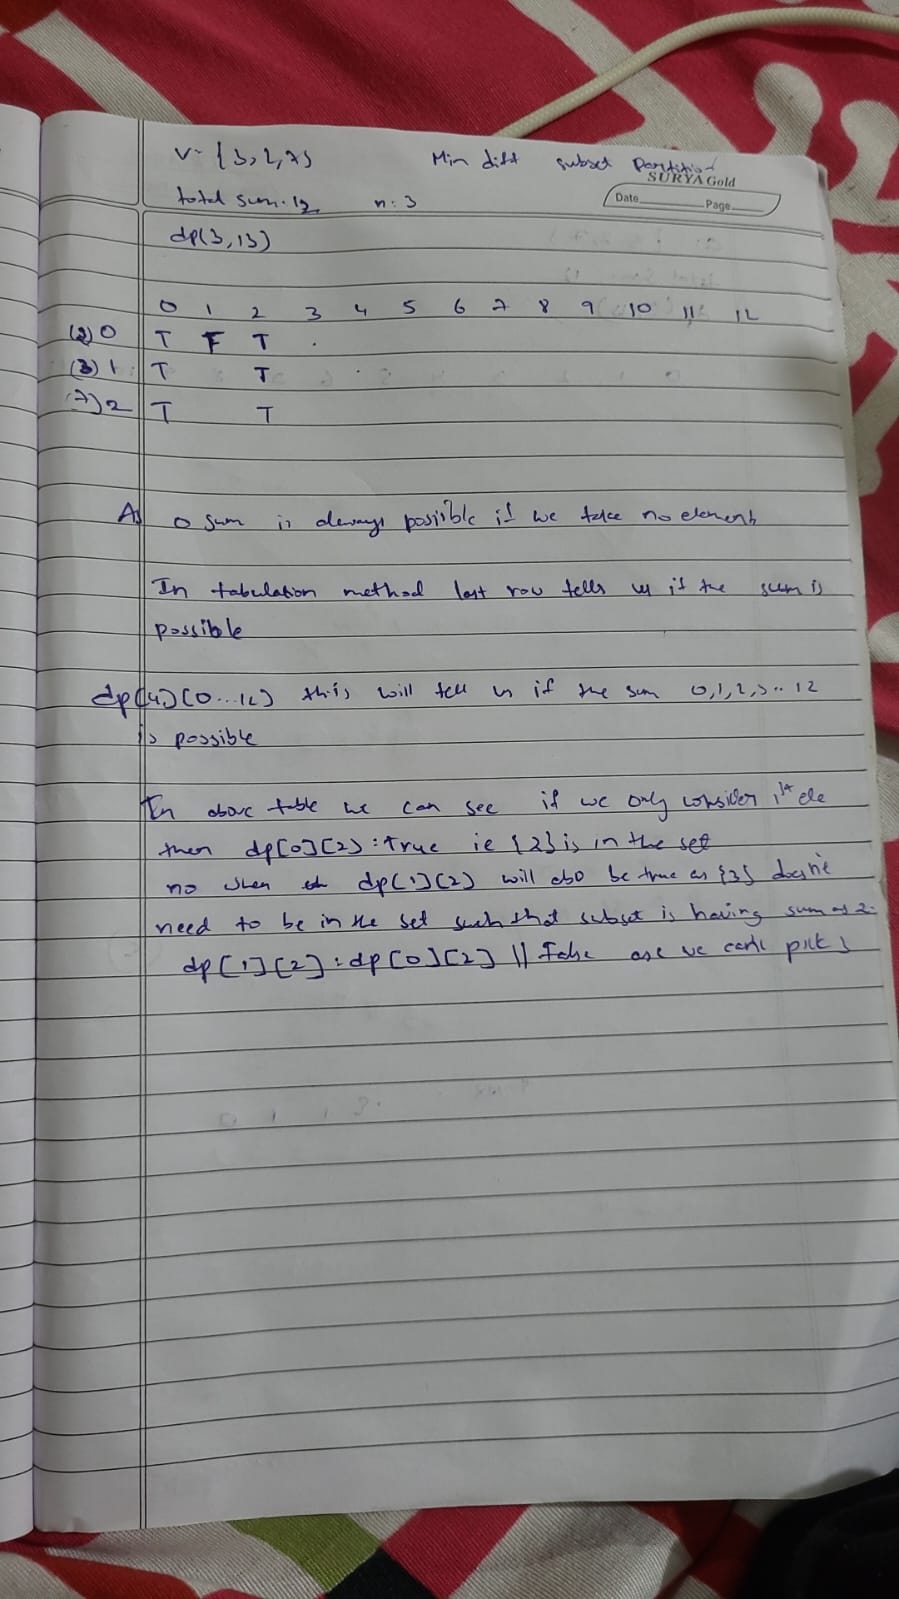 v = {3, 2, 7} Min diff subset Partition
SURYA Gold
total sum = 12 n = 3
Date Page
dp(3, 13)
0 1 2 3 4 5 6 7 8 9 10 11 12
(2) 0 T F T .
(3) 1 T T
(7) 2 T T
As 0 sum is always possible if we take no element
In tabulation method last row tells us if the sum is
possible
dp[4][0...12] this will tell us if the sum 0,1,2,3..12
is possible
In above table we can see if we only consider 1st ele
then dp[0][2] = True ie {2} is in the set
no when dp[1][2] will also be true as {3} doesn't
need to be in the set such that subset is having sum as 2.
dp[1][2] = dp[0][2] || False we can't pick 3